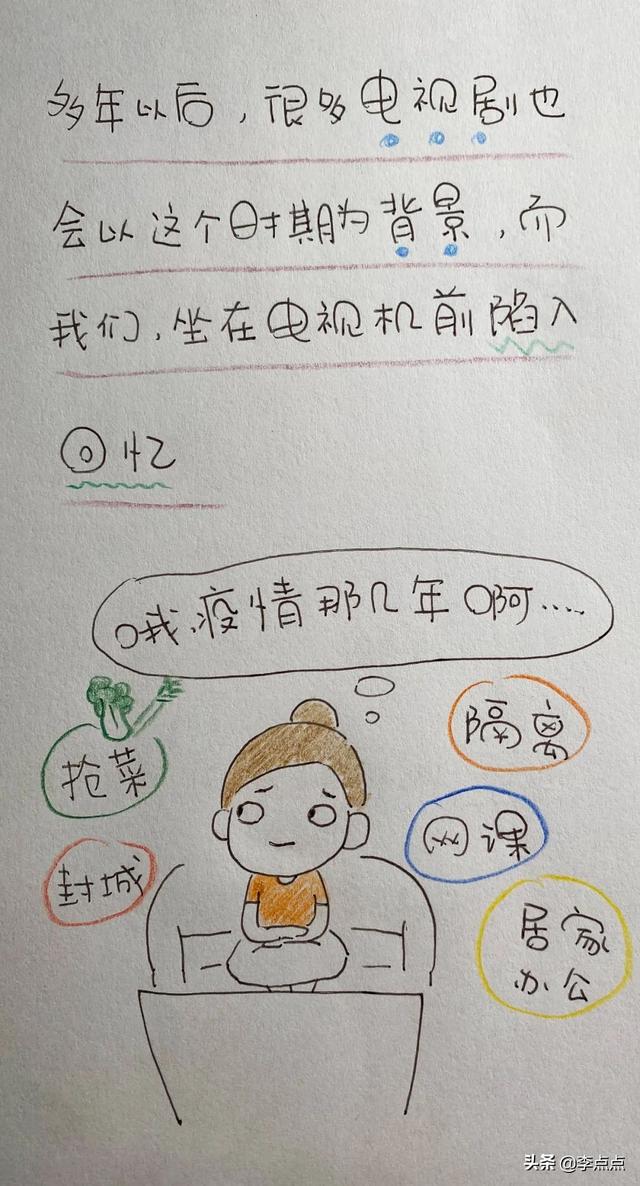 多年以后，很多电视剧也
会以这个时期为背景，而
我们，坐在电视机前陷入
回忆
哦，疫情那几年啊……
抢菜
隔离
网课
封城
居家
办公
头条 @李点点